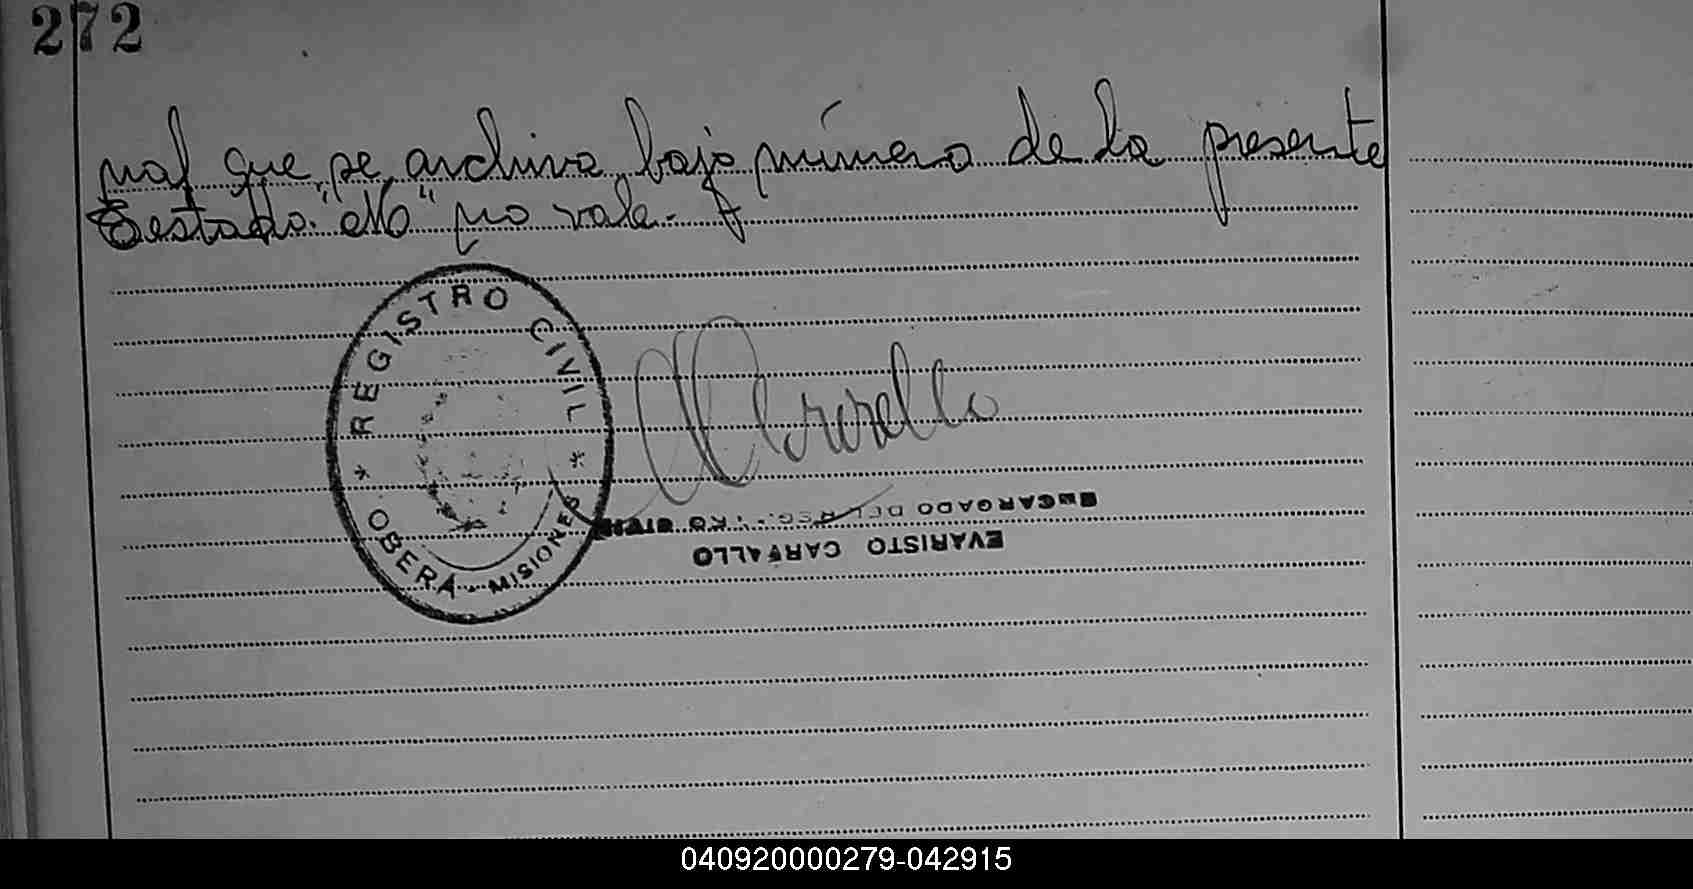 272
nal que se archiva bajo número de la presente
Testado: "eNo" no vale.-
REGISTRO CIVIL
* OBERA - MISIONES *
ENCARGADO DEL REG
EVARISTO CARVALLO
040920000279-042915